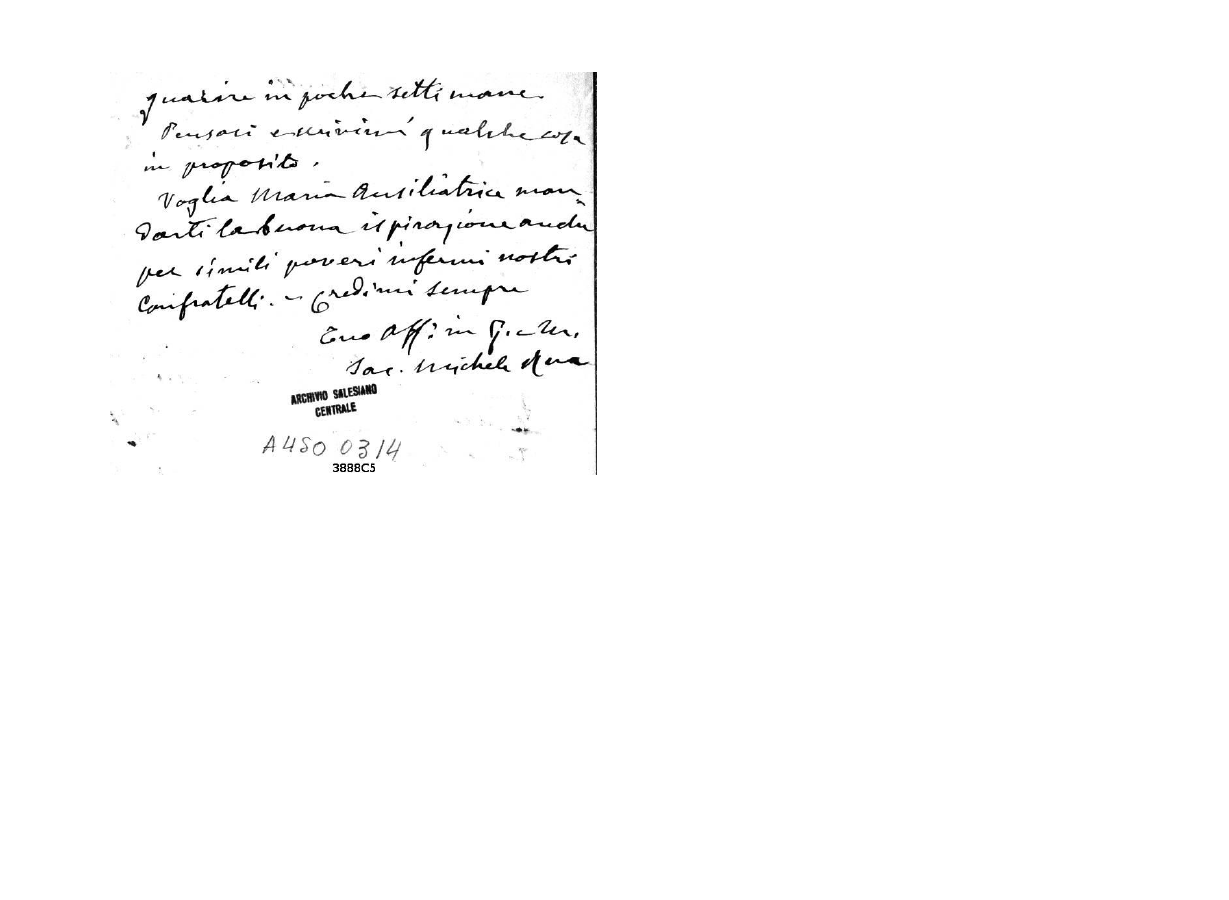 guarire in poche settimane.
Pensaci e scrivimi qualche cosa
in proposito.
Voglia Maria Ausiliatrice man-
darti la buona ispirazione anche
per simili poveri infermi nostri
Confratelli. – Credimi sempre
Tuo Aff.: in G. e M.
Sac. Michele Rua
ARCHIVIO SALESIANO
CENTRALE
A450 0314
3888C5